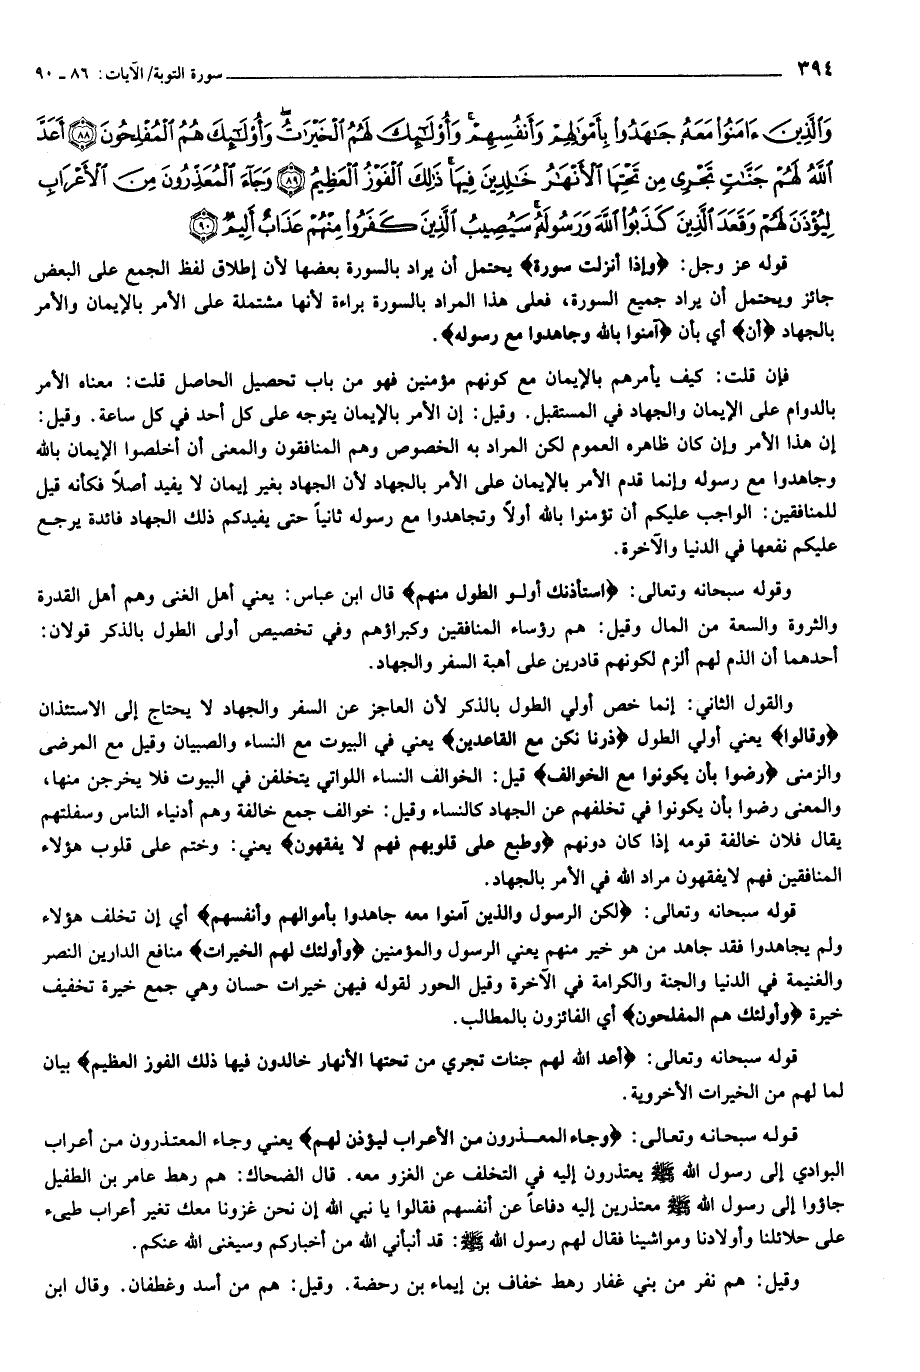 ٣٩٤ سورة التوبة/ الآيات: ٨٦ ـ ٩٠
وَالَّذِينَ ءَامَنُوا مَعَهُ جَٰهَدُوا بِأَمْوَٰلِهِمْ وَأَنفُسِهِمْ ۚ وَأُوْلَٰٓئِكَ لَهُمُ الْخَيْرَٰتُ ۖ وَأُوْلَٰٓئِكَ هُمُ الْمُفْلِحُونَ ﴿٨٨﴾ أَعَدَّ
اللَّهُ لَهُمْ جَنَّٰتٍ تَجْرِى مِن تَحْتِهَا الْأَنْهَٰرُ خَٰلِدِينَ فِيهَا ۚ ذَٰلِكَ الْفَوْزُ الْعَظِيمُ ﴿٨٩﴾ وَجَآءَ الْمُعَذِّرُونَ مِنَ الْأَعْرَابِ
لِيُؤْذَنَ لَهُمْ وَقَعَدَ الَّذِينَ كَذَبُوا اللَّهَ وَرَسُولَهُ ۚ سَيُصِيبُ الَّذِينَ كَفَرُوا مِنْهُمْ عَذَابٌ أَلِيمٌ ﴿٩٠﴾
قوله عز وجل: ﴿وإذا أنزلت سورة﴾ يحتمل أن يراد بالسورة بعضها لأن إطلاق لفظ الجمع على البعض
جائز ويحتمل أن يراد جميع السورة، فعلى هذا المراد بالسورة براءة لأنها مشتملة على الأمر بالإيمان والأمر
بالجهاد ﴿أن﴾ أي بأن ﴿آمنوا بالله وجاهدوا مع رسوله﴾.
فإن قلت: كيف يأمرهم بالإيمان مع كونهم مؤمنين فهو من باب تحصيل الحاصل قلت: معناه الأمر
بالدوام على الإيمان والجهاد في المستقبل. وقيل: إن الأمر بالإيمان يتوجه على كل أحد في كل ساعة. وقيل:
إن هذا الأمر وإن كان ظاهره العموم لكن المراد به الخصوص وهم المنافقون والمعنى أن أخلصوا الإيمان بالله
وجاهدوا مع رسوله وإنما قدم الأمر بالإيمان على الأمر بالجهاد لأن الجهاد بغير إيمان لا يفيد أصلاً فكأنه قيل
للمنافقين: الواجب عليكم أن تؤمنوا بالله أولاً وتجاهدوا مع رسوله ثانياً حتى يفيدكم ذلك الجهاد فائدة يرجع
عليكم نفعها في الدنيا والآخرة.
وقوله سبحانه وتعالى: ﴿استأذنك أولو الطول منهم﴾ قال ابن عباس: يعني أهل الغنى وهم أهل القدرة
والثروة والسعة من المال وقيل: هم رؤساء المنافقين وكبراؤهم وفي تخصيص أولى الطول بالذكر قولان:
أحدهما أن الذم لهم ألزم لكونهم قادرين على أهبة السفر والجهاد.
والقول الثاني: إنما خص أولي الطول بالذكر لأن العاجز عن السفر والجهاد لا يحتاج إلى الاستئذان
﴿وقالوا﴾ يعني أولي الطول ﴿ذرنا نكن مع القاعدين﴾ يعني في البيوت مع النساء والصبيان وقيل مع المرضى
والزمنى ﴿رضوا بأن يكونوا مع الخوالف﴾ قيل: الخوالف النساء اللواتي يتخلفن في البيوت فلا يخرجن منها،
والمعنى رضوا بأن يكونوا في تخلفهم عن الجهاد كالنساء وقيل: خوالف جمع خالفة وهم أدنياء الناس وسفلتهم
يقال فلان خالفة قومه إذا كان دونهم ﴿وطبع على قلوبهم فهم لا يفقهون﴾ يعني: وختم على قلوب هؤلاء
المنافقين فهم لايفقهون مراد الله في الأمر بالجهاد.
قوله سبحانه وتعالى: ﴿لكن الرسول والذين آمنوا معه جاهدوا بأموالهم وأنفسهم﴾ أي إن تخلف هؤلاء
ولم يجاهدوا فقد جاهد من هو خير منهم يعني الرسول والمؤمنين ﴿وأولئك لهم الخيرات﴾ منافع الدارين النصر
والغنيمة في الدنيا والجنة والكرامة في الآخرة وقيل الحور لقوله فيهن خيرات حسان وهي جمع خيرة تخفيف
خيرة ﴿وأولئك هم المفلحون﴾ أي الفائزون بالمطالب.
قوله سبحانه وتعالى: ﴿أعد الله لهم جنات تجري من تحتها الأنهار خالدون فيها ذلك الفوز العظيم﴾ بيان
لما لهم من الخيرات الأخروية.
قوله سبحانه وتعالى: ﴿وجاء المعـذرون من الأعراب ليؤذن لهم﴾ يعني وجاء المعتذرون من أعراب
البوادي إلى رسول الله ﷺ يعتذرون إليه في التخلف عن الغزو معه. قال الضحاك: هم رهط عامر بن الطفيل
جاؤوا إلى رسول الله ﷺ معتذرين إليه دفاعاً عن أنفسهم فقالوا يا نبي الله إن نحن غزونا معك تغير أعراب طيىء
على حلائلنا وأولادنا ومواشينا فقال لهم رسول الله ﷺ: قد أنبأني الله من أخباركم وسيغنى الله عنكم.
وقيل: هم نفر من بني غفار رهط خفاف بن إيماء بن رحضة. وقيل: هم من أسد وغطفان. وقال ابن